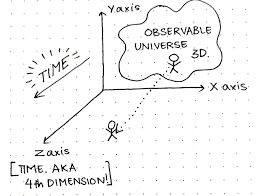 Y axis
OBSERVABLE
UNIVERSE
3D.
TIME
X axis
Z axis
[TIME. AKA
4th DIMENSION!]